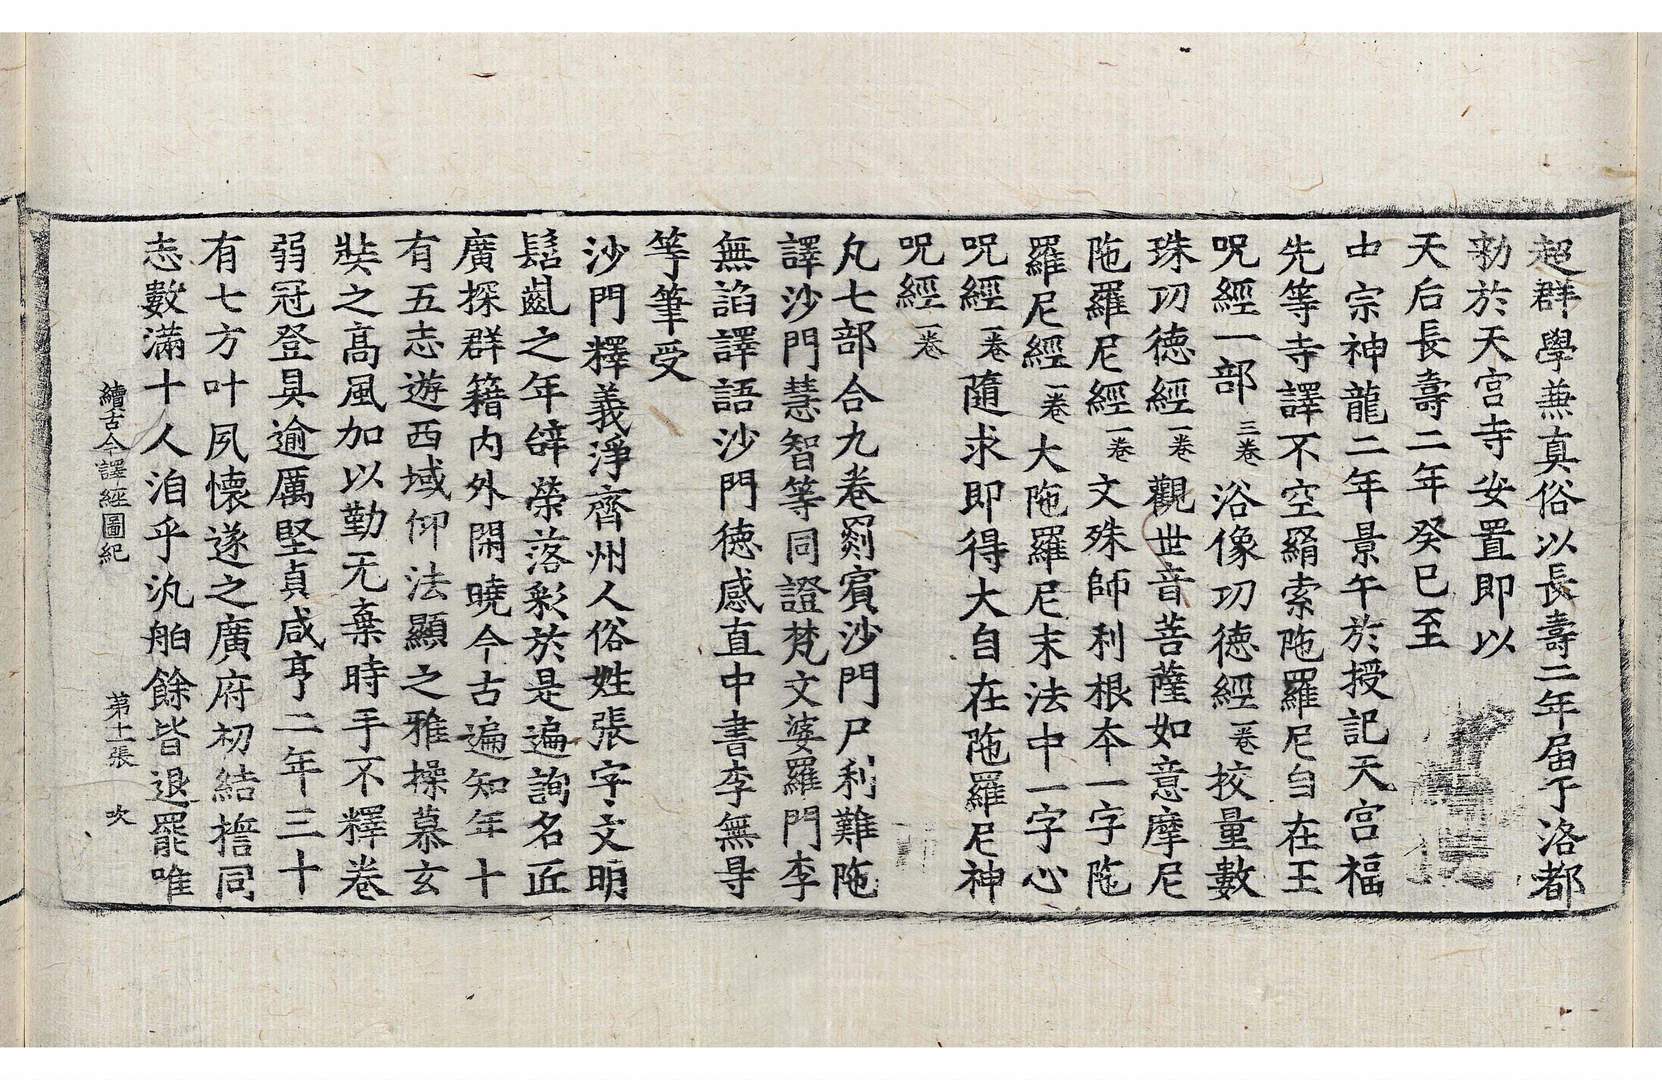 超群學兼真俗以長壽二年届于洛都
勑於天宮寺安置即以
天后長壽二年癸巳至
中宗神龍二年景午於授記天宮福
先等寺譯不空羂索陁羅尼自在王
呪經一部三卷浴像功德經一卷挍量數
珠功德經一卷觀世音菩薩如意摩尼
陁羅尼經一卷文殊師利根本一字陁
羅尼經一卷大陁羅尼末法中一字心
呪經一卷隨求即得大自在陁羅尼神
呪經一卷
凡七部合九卷罽賓沙門尸利難陁
譯沙門慧智等同證梵文婆羅門李
無諂譯語沙門德感直中書李無㝵
等筆受
沙門釋義淨齊州人俗姓張字文明
髫齓之年辝榮落彩於是遍詢名匠
廣探群籍内外閑曉今古遍知年十
有五志遊西域仰法顯之雅操慕玄
奘之高風加以勤无棄時手不釋卷
弱冠登具逾厲堅貞咸亨二年三十
有七方叶夙懷遂之廣府初結擔同
志數滿十人洎乎汎舶餘皆退罷唯
續古今譯經圖紀 第十一張 吹